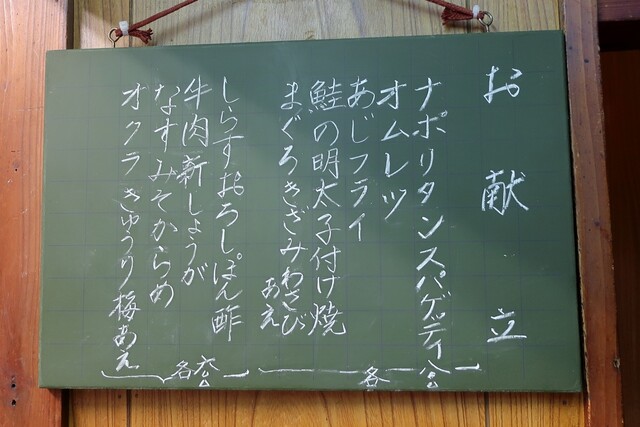 お献立
ナポリタンスパゲッティ
オムレツ
あじフライ
鮭の明太子付け焼
まぐろきざみわさびあえ
各
しらすおろしぽん酢
牛肉新しょうが
なすみそからめ
オクラきゅうり梅あえ
各